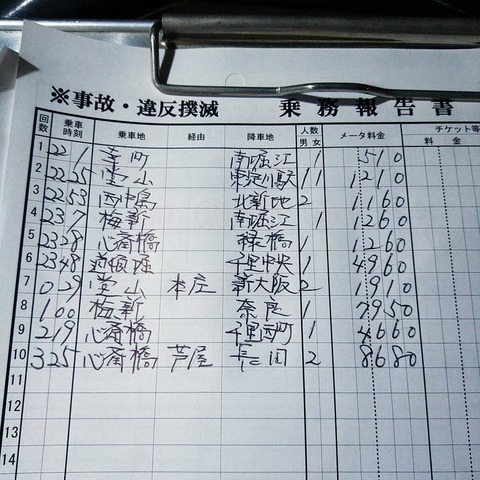 ※事故・違反撲滅 乗務報告書
回数 乗車時刻 乗車地 経由 降車地 人数 男 女 メータ料金 チケット等 料金
1 22 1 幸町 南堀江 1 510
2 22 25 堂山 東淀川駅 1 1 1210
3 22 53 西中島 北新地 2 1160
4 23 7 梅新 南堀江 1 1260
5 23 28 心斎橋 緑橋 1 1260
6 23 48 道頓堀 千里中央 1 4960
7 0 29 堂山 本庄 新大阪 2 1910
8 1 00 梅新 奈良 1 7950
9 2 19 心斎橋 千里西町 1 4660
10 3 25 心斎橋 芦屋 長田 2 8680
11
12
13
14